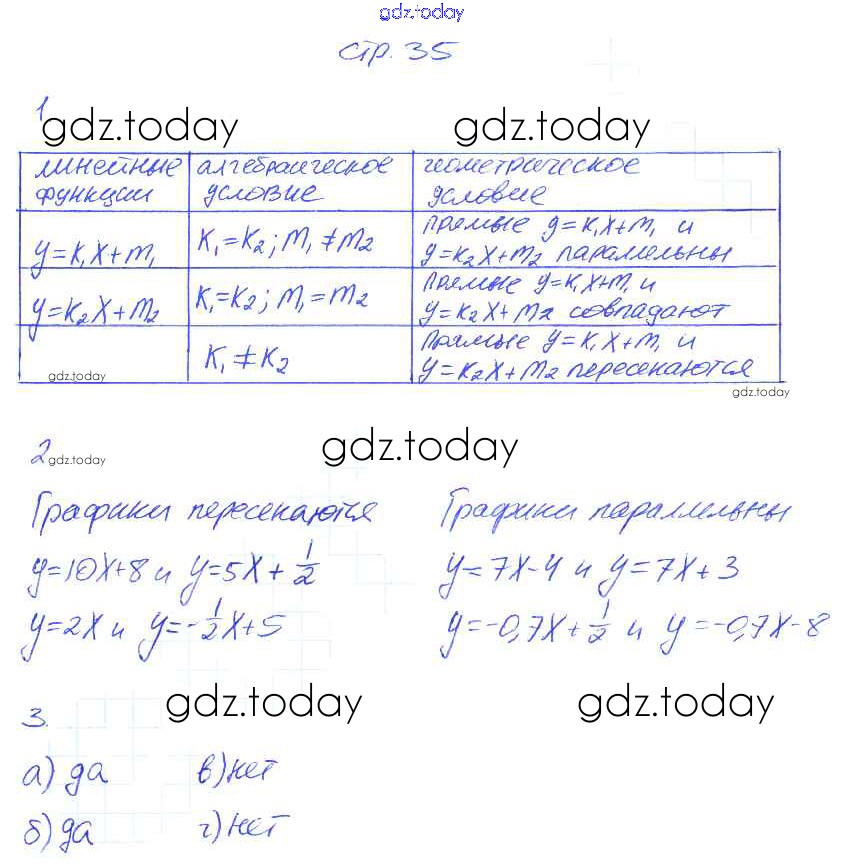 gdz.today
стр. 35
1
gdz.today gdz.today
линейные функции | алгебраическое условие | геометрическое условие
y=k₁x+m₁ | k₁=k₂; m₁≠m₂ | прямые y=k₁x+m₁ и y=k₂x+m₂ параллельны
y=k₂x+m₂ | k₁=k₂; m₁=m₂ | прямые y=k₁x+m₁ и y=k₂x+m₂ совпадают
gdz.today | k₁≠k₂ | прямые y=k₁x+m₁ и y=k₂x+m₂ пересекаются
gdz.today
gdz.today
2 gdz.today
Графики пересекаются
y=10x+8 и y=5x+1/2
y=2x и y=-1/2x+5
Графики параллельны
y=7x-4 и y=7x+3
y=-0,7x+1/2 и y=-0,7x-8
gdz.today gdz.today
3.
а) да в) нет
б) да г) нет